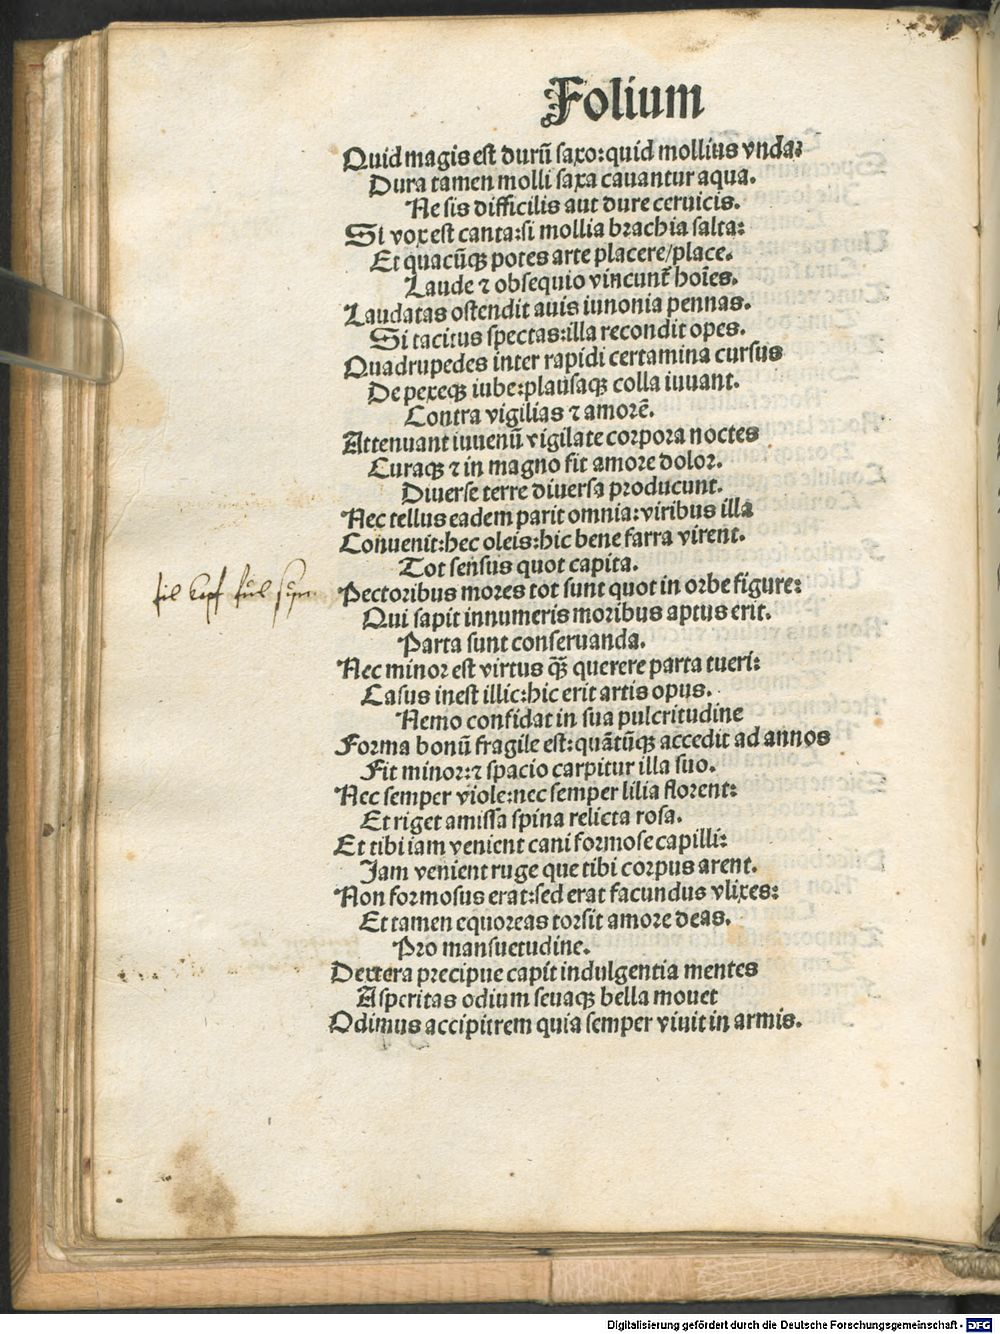 Folium
Quid magis est durū saxo: quid mollius vnda:
Dura tamen molli saxa cauantur aqua.
Ne sis difficilis aut dure ceruicis.
Si vox est canta: si mollia brachia salta:
Et quacūqꝫ potes arte placere/place.
Laude ⁊ obsequio vincunt̄ hoīes.
Laudatas ostendit auis iunonia pennas.
Si tacitus spectas: illa recondit opes.
Quadrupedes inter rapidi certamina cursus
De pexeqꝫ iube: plausaqꝫ colla iuuant.
Contra vigilias ⁊ amorē.
Attenuant iuuenū vigilate corpora noctes
Curaqꝫ ⁊ in magno fit amore dolor.
Diuerse terre diuersa producunt.
Nec tellus eadem parit omnia: viribus illa
Conuenit: hec oleis: hic bene farra virent.
Tot sensus quot capita.
Pectoribus mores tot sunt quot in orbe figure:
Qui sapit innumeris moribus aptus erit.
fil kopf ful syn
Parta sunt conseruanda.
Nec minor est virtus qꝫ̄ querere parta tueri:
Casus inest illic: hic erit artis opus.
Nemo confidat in sua pulcritudine
Forma bonū fragile est: quātūqꝫ accedit ad annos
Fit minor: ⁊ spacio carpitur illa suo.
Nec semper viole: nec semper lilia florent:
Et riget amissa spina relicta rosa.
Et tibi iam venient cani formose capilli:
Jam venient ruge que tibi corpus arent.
Non formosus erat: sed erat facundus vlixes:
Et tamen equoreas torsit amore deas.
Pro mansuetudine.
Dextera precipue capit indulgentia mentes
Asperitas odium seuaqꝫ bella mouet
Odimus accipitrem quia semper viuit in armis.
Digitalisierung gefördert durch die Deutsche Forschungsgemeinschaft - DFG